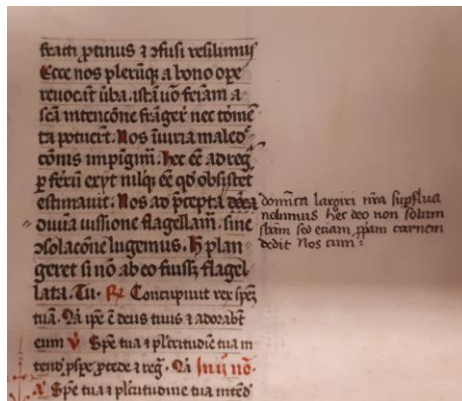 fracti ꝓtinus ⁊ ↄfusi resilimus
Ecce nos pleruͣqꝫ a bono oꝑe
reuocāt ūba. istā uō feīam a
scā intencōne frāgeꝛ nec tōmē
ta potueꝛūt. Nos īiuria maled
cōnis impīgim̄. Hec eē ad reg
ꝑ ferūt exyt nilqꝫ eē qd̄ obsistet
estimauit. Nos ad p̄cepta
diuīa uissione flagellam̄. sine
ↄsolacōne lugemus. H plan
geret si nō ab eo fuissꝫ flagel
lata. Tu. R̸ Concupiuit rex speꝫ
tuā. Q̄a ip̄e ē deus tuus ⁊ adorabt̄
eum V̸ Spē tua ⁊ pl̄critudīe tua in
tend̄ ꝓspe ꝓcede ⁊ reḡ. Q̄a
Spē tua ⁊ pl̄critudine tua intēd̄
domīca largiri nr̄a sup̄flua
nolumus hec deo non solum
sb̄am sed eciam ꝓpam carnem
dedit Nos cum